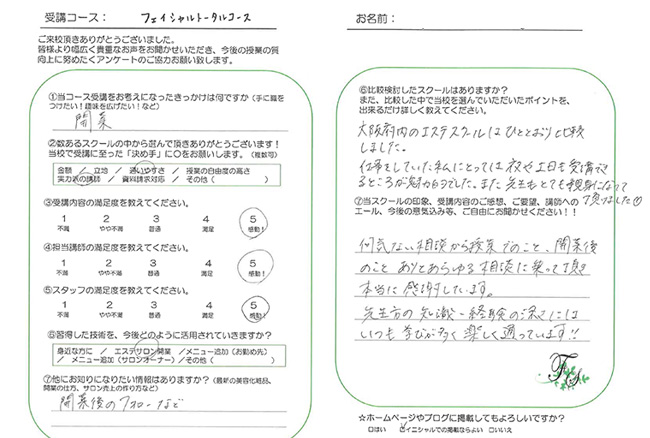 受講コース： フェイシャルトータルコース
ご来校頂きありがとうございました。
皆様より幅広く貴重なお声をお聞かせいただき、今後の授業の質
向上に努めたくアンケートのご協力お願い致します。
①当コース受講をお考えになったきっかけは何ですか（手に職を
つけたい！趣味を広げたい！など）
開業
②数あるスクールの中から選んで頂きありがとうございます！
当校で受講に至った「決め手」に〇をお願いします。（複数可）
金額 ／ 立地 ／ 通いやすさ ／ 授業の自由度の高さ
実力派の講師 ／ 資料請求対応 ／ その他（ ）
③受講内容の満足度を教えてください。
1 2 3 4 5
不満 やや不満 普通 満足 感動！
④担当講師の満足度を教えてください。
1 2 3 4 5
不満 やや不満 普通 満足 感動！
⑤スタッフの満足度を教えてください。
1 2 3 4 5
不満 やや不満 普通 満足 感動！
⑥習得した技術を、今後どのように活用されていきますか？
身近な方に ／ エステサロン開業 ／メニュー追加（お勤め先）
／ メニュー追加（サロンオーナー）／その他（ ）
⑦他にお知りになりたい情報はありますか？（最新の美容化粧品、
開業の仕方、サロン売上の作り方など）
開業後のフォローなど
お名前：
⑥比較検討したスクールはありますか？
また、比較した中で当校を選んでいただいたポイントを、
出来るだけ詳しく教えてください。
大阪府内のエステスクールはひととおり比較
しました。
仕事をしていた私にとっては夜や土日も受講でき
るところが魅力的でした。また先生もとても親身になって
頂けました
⑦当スクールの印象、受講内容のご感想、ご要望、講師への
エール、今後の意気込み等、ご自由にお聞かせください！！
何気ない相談から授業でのこと、開業後
のこと ありとあらゆる相談に乗って頂き
本当に感謝しています。
先生方の知識・経験の深さには
いつも学びが多く楽しく通っています!!
☆ホームページやブログに掲載してもよろしいですか？
□はい ☑イニシャルでの掲載ならよい □いいえ